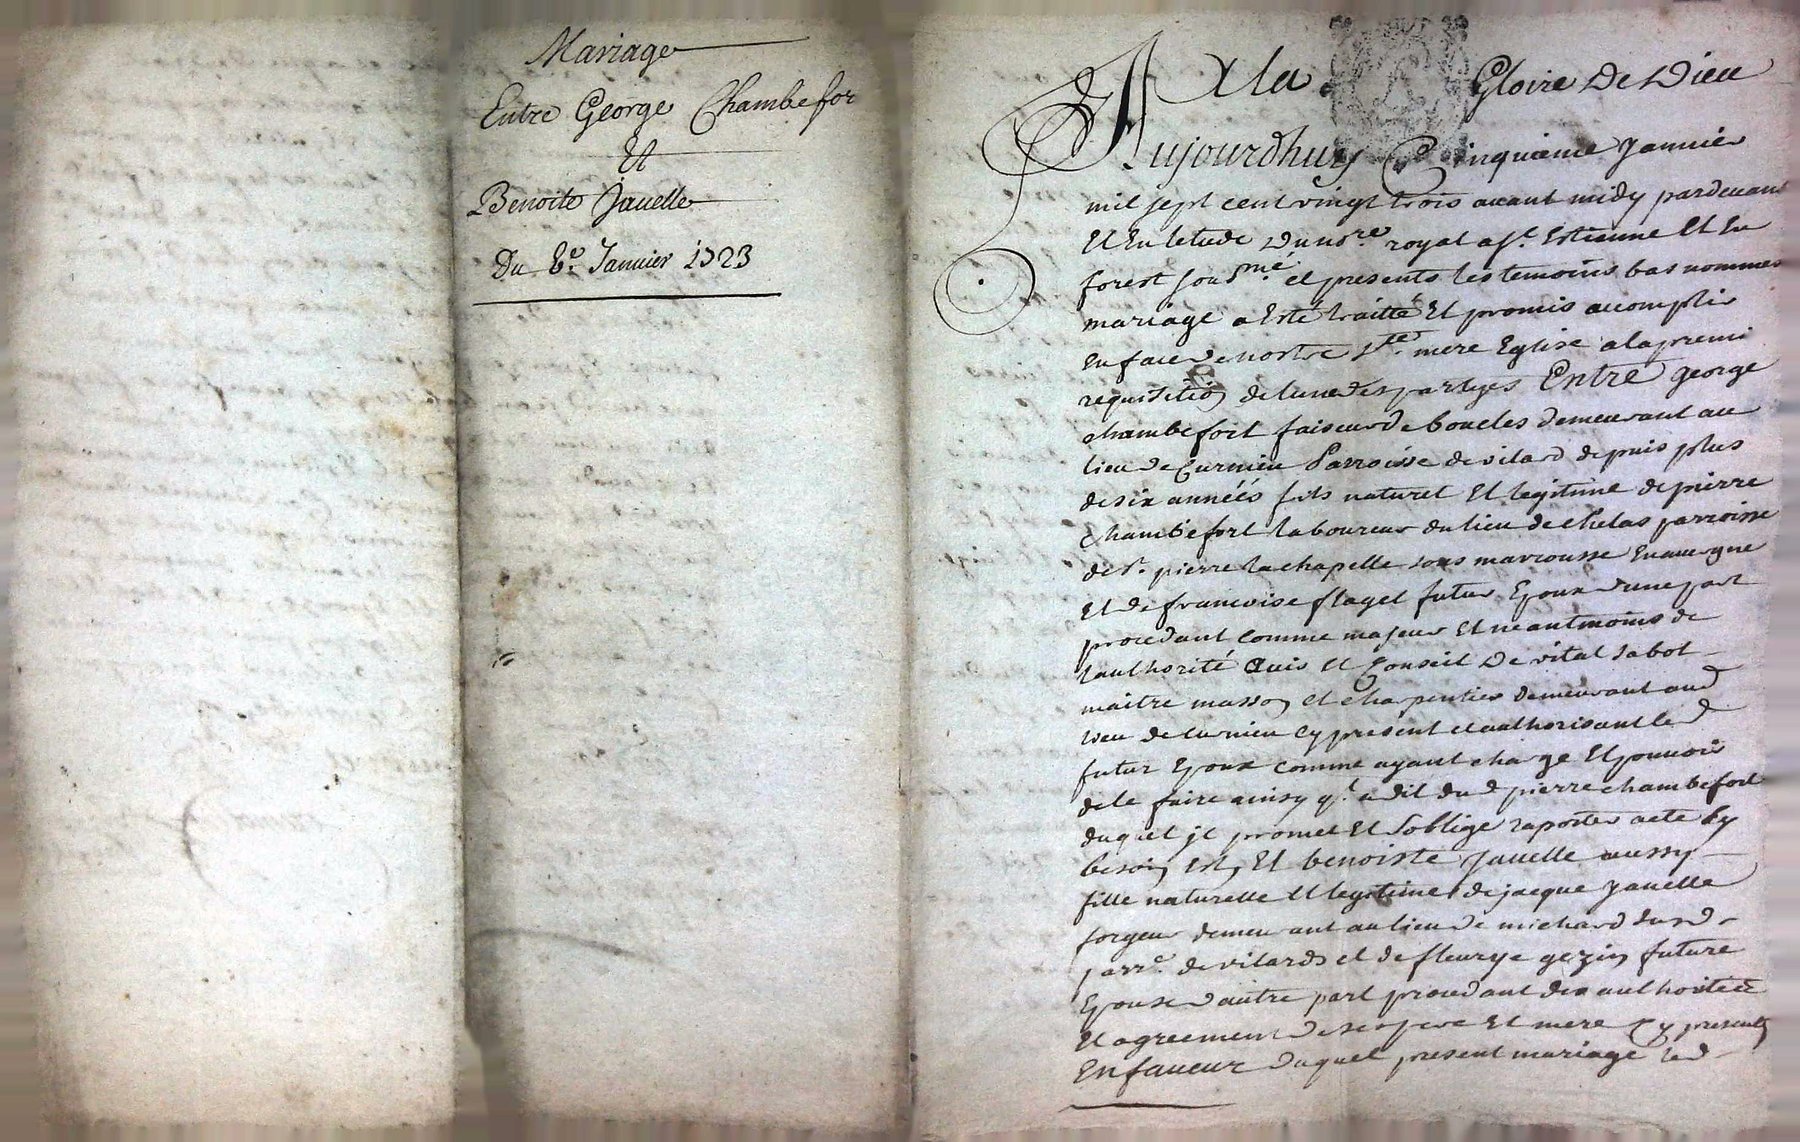 Mariage
Entre George Chambefor
Et
Benoite Javelle
Du Janvier 1723
A la Gloire De Dieu
Aujourdhuy Cinquieme Janvier
mil sept cent vingt trois avant midy pardevant
Et En letude du no.re royal a st. Estienne Et En
forest sous.né et presents les temoins bas nommes
mariage a Esté traitté Et promis accomplir
En face de nostre s.te mere Eglise a la premi
requisition de lune des partyes Entre george
chambefort faiseur de boucles demeurant au
lieu de Curnieu Parroisse de vilard depuis plus
de six années fils naturel Et legitime de pierre
Chambefort laboureur du lieu de chelas parroisse
de st. pierre la chapelle sous marcousse En auvergne
Et de francoise flaget futur Epoux dune part
procedant comme majeur Et neantmoins de
lauthorité avis Et Conseil De vital sabot
maitre masson et charpentier demeurant aud
lieu de curnieu Cy present et authorisant led
futur Epoux comme ayant charge Et pouvoir
de le faire ainsy q.l a dit dud pierre chambefort
duquel jl promet Et soblige raporter acte sy
besoin Est, Et benoiste Javelle aussy
fille naturelle Et legitime de jacque Javelle
forgeur demeurant au lieu de michard susd
parr.e de vilards et de fleurye gezin future
Epouse dautre part procedant de authorité
Et agreement de ses pere Et mere Cy presents
En faveur duquel present mariage led